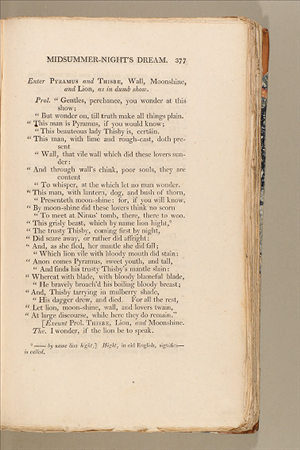 MIDSUMMER-NIGHT'S DREAM. 377
Enter PYRAMUS and THISBE, Wall, Moonshine,
and Lion, as in dumb show.
Prol. "Gentles, perchance, you wonder at this
show;
"But wonder on, till truth make all things plain.
"This man is Pyramus, if you would know;
"This beauteous lady Thisby is, certáin.
"This man, with lime and rough-cast, doth pre-
sent
"Wall, that vile wall which did these lovers sun-
der:
"And through wall's chink, poor souls, they are
content
"To whisper, at the which let no man wonder.
"This man, with lantern, dog, and bush of thorn,
"Presenteth moon-shine: for, if you will know,
"By moon-shine did these lovers think no scorn
"To meet at Ninus' tomb, there, there to woo.
"This grisly beast, which by name lion hight,*
"The trusty Thisby, coming first by night,
"Did scare away, or rather did affright:
"And, as she fled, her mantle she did fall;
"Which lion vile with bloody mouth did stain:
"Anon comes Pyramus, sweet youth, and tall,
"And finds his trusty Thisby's mantle slain:
"Whereat with blade, with bloody blameful blade,
"He bravely broach'd his boiling bloody breast;
"And, Thisby tarrying in mulberry shade,
"His dagger drew, and died. For all the rest,
"Let lion, moon-shine, wall, and lovers twain,
"At large discourse, while here they do remain."
[Exeunt Prol. THISBE, Lion, and Moonshine.
The. I wonder, if the lion be to speak.
* —— by name lion hight,] Hight, in old English, signifies—
is called.